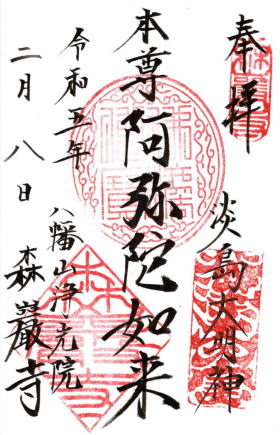 奉拝
淡島大明神
本尊阿弥陀如来
令和五年
二月八日
八幡山浄光院
森巖寺